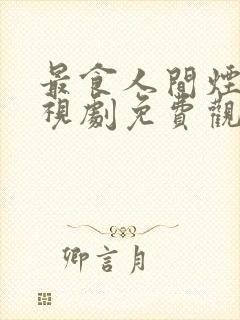 最食人間煙
視劇免費觀
卿言月